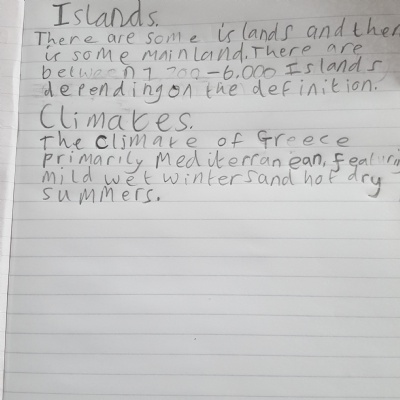 Islands.
There are some islands and ther
is some mainland. There are
between 1 200-6.000 Islands
depending on the definition.
Climates.
The climate of Greece
primarily Mediterranean, featurin
mild wet winters and hot dry
summers.